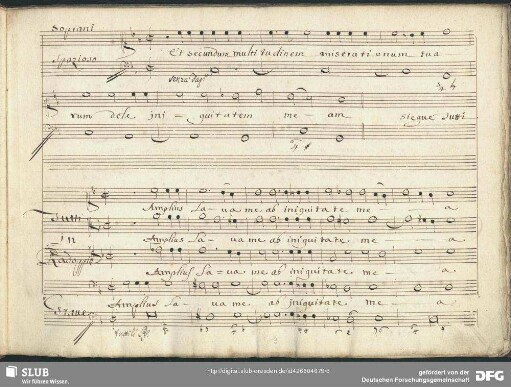 Soprani
Et secundum multitudinem miserationum tua
Spazioso
rum dele ini - quitatem me - am
siegue Tutti
Amplius La - va me ab iniquitate me - a
Tutti
Amplius La - va me ab iniquitate me - a
Amplius La - va me ab iniquitate me - a
Amplius La - va me ab iniquitate me - a
SLUB
Wir führen Wissen.
gefördert von der
Deutschen Forschungsgemeinschaft
DFG